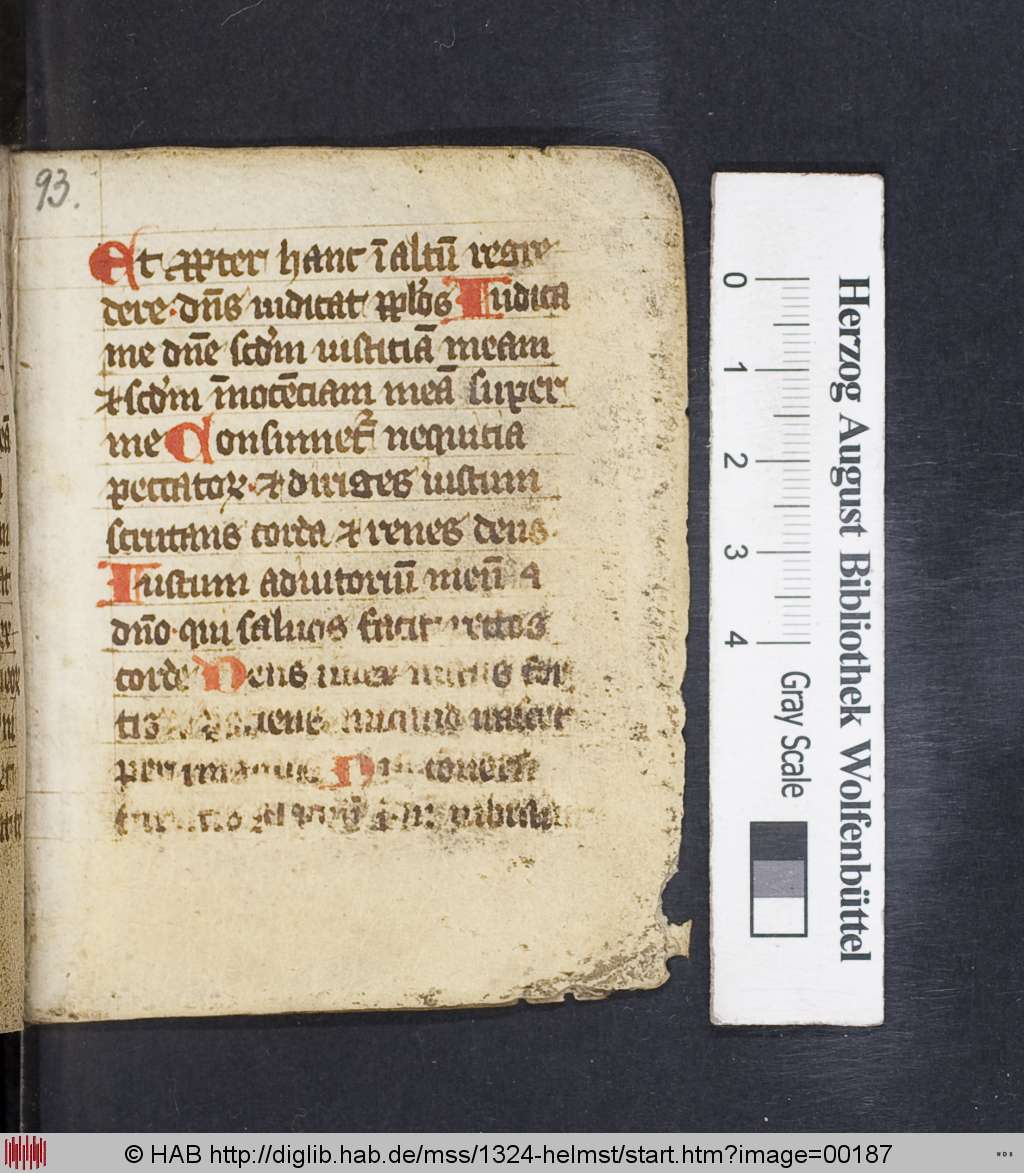 93.
Et ꝓpter hanc ī altū regre
dere· dn̄s iudicat ppl̓os Iudica
me dn̄e scd̓m iusticiā meam
⁊ scd̓m īnocēciam meā super
me Consummet᷑ nequicia
peccatoꝝ· ⁊ diriges iustum
scrutans corda ⁊ renes deus·
Iustum adiutoriū meū a
dn̄o· qui saluos facit rectos
corde Deus iudex iustus for
tis paciens
per Nisi conuersi
vibrabit
0 1 2 3 4
Gray Scale
Herzog August Bibliothek Wolfenbüttel
© HAB http://diglib.hab.de/mss/1324-helmst/start.htm?image=00187